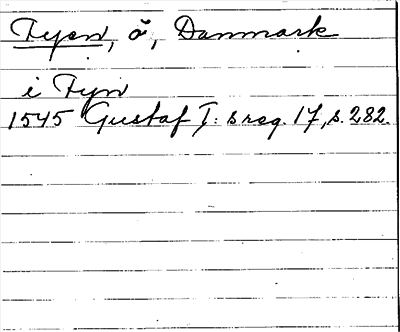 Fyen, ö, Danmark
i Fyn
1545 Gustaf I: s reg. 17, s. 282.